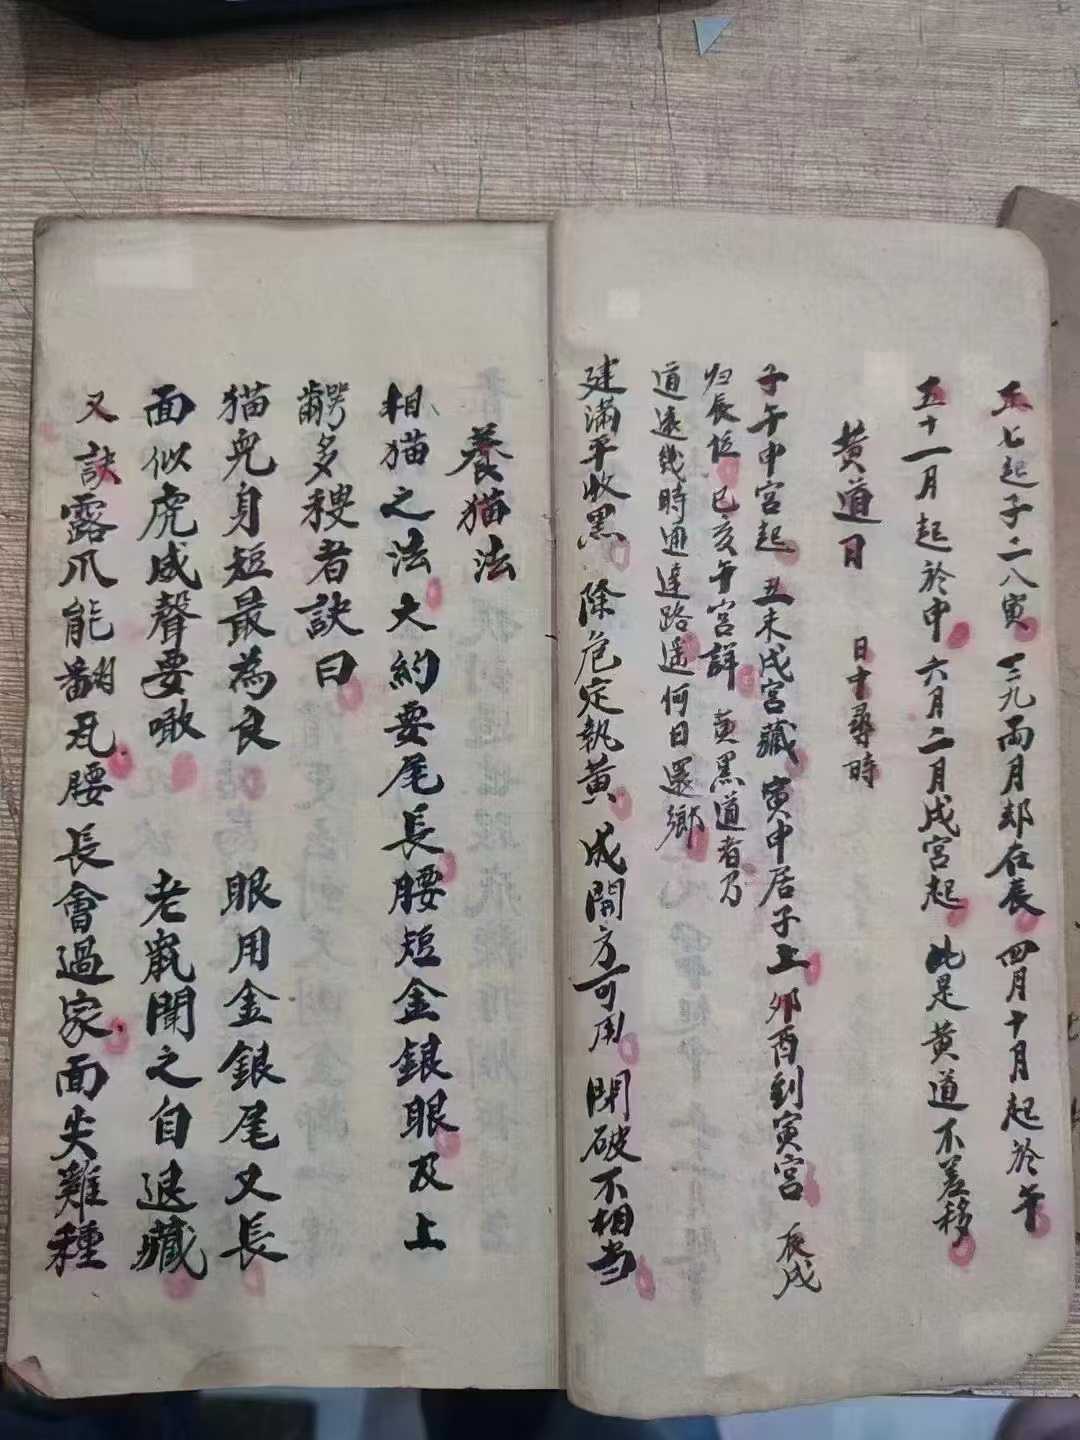 正七起子二八寅 三九兩月却在辰 四月十月起於午
五十一月起於申 六月二月戌宮起 此是黄道不差移
黄道日 日十尋時
子午申宮起 丑未戌宮藏 寅申居子上 卯酉到寅宮 辰戌
归辰位 巳亥午宮詳 黄黑道者乃
道遠幾時通達路遥何日還鄉
建滿平收黑 除危定執黄 成開方可用 閉破不相当
養猫法
相猫之法大約要尾長腰短金銀眼及上
齶多稜者訣曰
猫兒身短最為良 眼用金銀尾又長
面似虎威聲要噉 老鼠聞之自退藏
又訣露爪能翻瓦腰長會過家面尖雞種